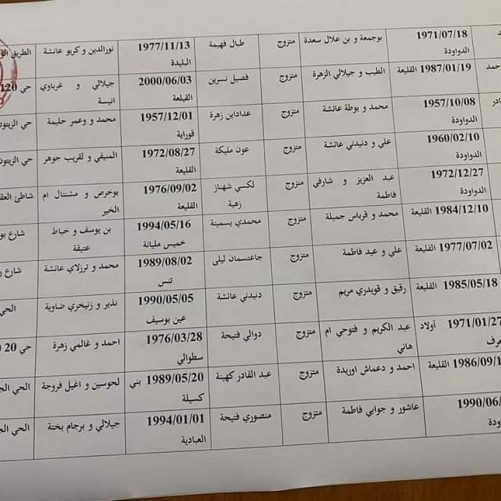 1971/07/18 بوجمعة و بن علال سعدة متزوج طبال فهيمة 1977/11/13 نورالدين و كربو عائشة الطريق
الدواودة البليدة
1987/01/19 القليعة الطيب و جيلالي الزهرة متزوج فصيل نسرين 2000/06/03 جيلالي و غرباوي حي 120
القليعة انيسة
1957/10/08 محمد و بوطة عائشة متزوج عدادابن زهرة 1957/12/01 محمد و وعمر حليمة حي الزيتون
الدواودة قوراية
1960/02/10 علي و دنيدني عائشة متزوج عون مليكة 1972/08/27 المنيفي و لقريب جوهر حي الزيتون
الدواودة القليعة
1972/12/27 عبد العزيز و شارفي متزوج لكسي شهناز 1976/09/02 بوحرص و مشنتال ام شاطئ العق
الدواودة فاطمة زهية القليعة الخير
1984/12/10 القليعة محمد و قرباس جميلة متزوج محمدي يسمينة 1994/05/16 بن يوسف و خياط شارع بو
خميس مليانة عتيقة
1977/07/02 القليعة علي و عبد فاطمة متزوج جاعتسمان ليلى 1989/08/02 محمد و ترزلاي عائشة شارع
تنس
1985/05/18 القليعة رفيق و قويدري مريم متزوج دنيدني عائشة 1990/05/05 نذير و زنيخري ضاوية الحي
عين بوسيف
1971/01/27 أولاد عبد الكريم و فتوحي ام متزوج دوالي فتيحة 1976/03/28 احمد و غالمي زهرة حي 20
هاني سطوالي
القليعة احمد و دعماش اوريدة متزوج عبد القادر كهينة 1989/05/20 بني لحوسين و اغيل فروجة الحي الج
كسيلة
عاشور و جوابي فاطمة متزوج منصوري فتيحة 1994/01/01 جيلالي و برجام بختة الحي الج
العبادية